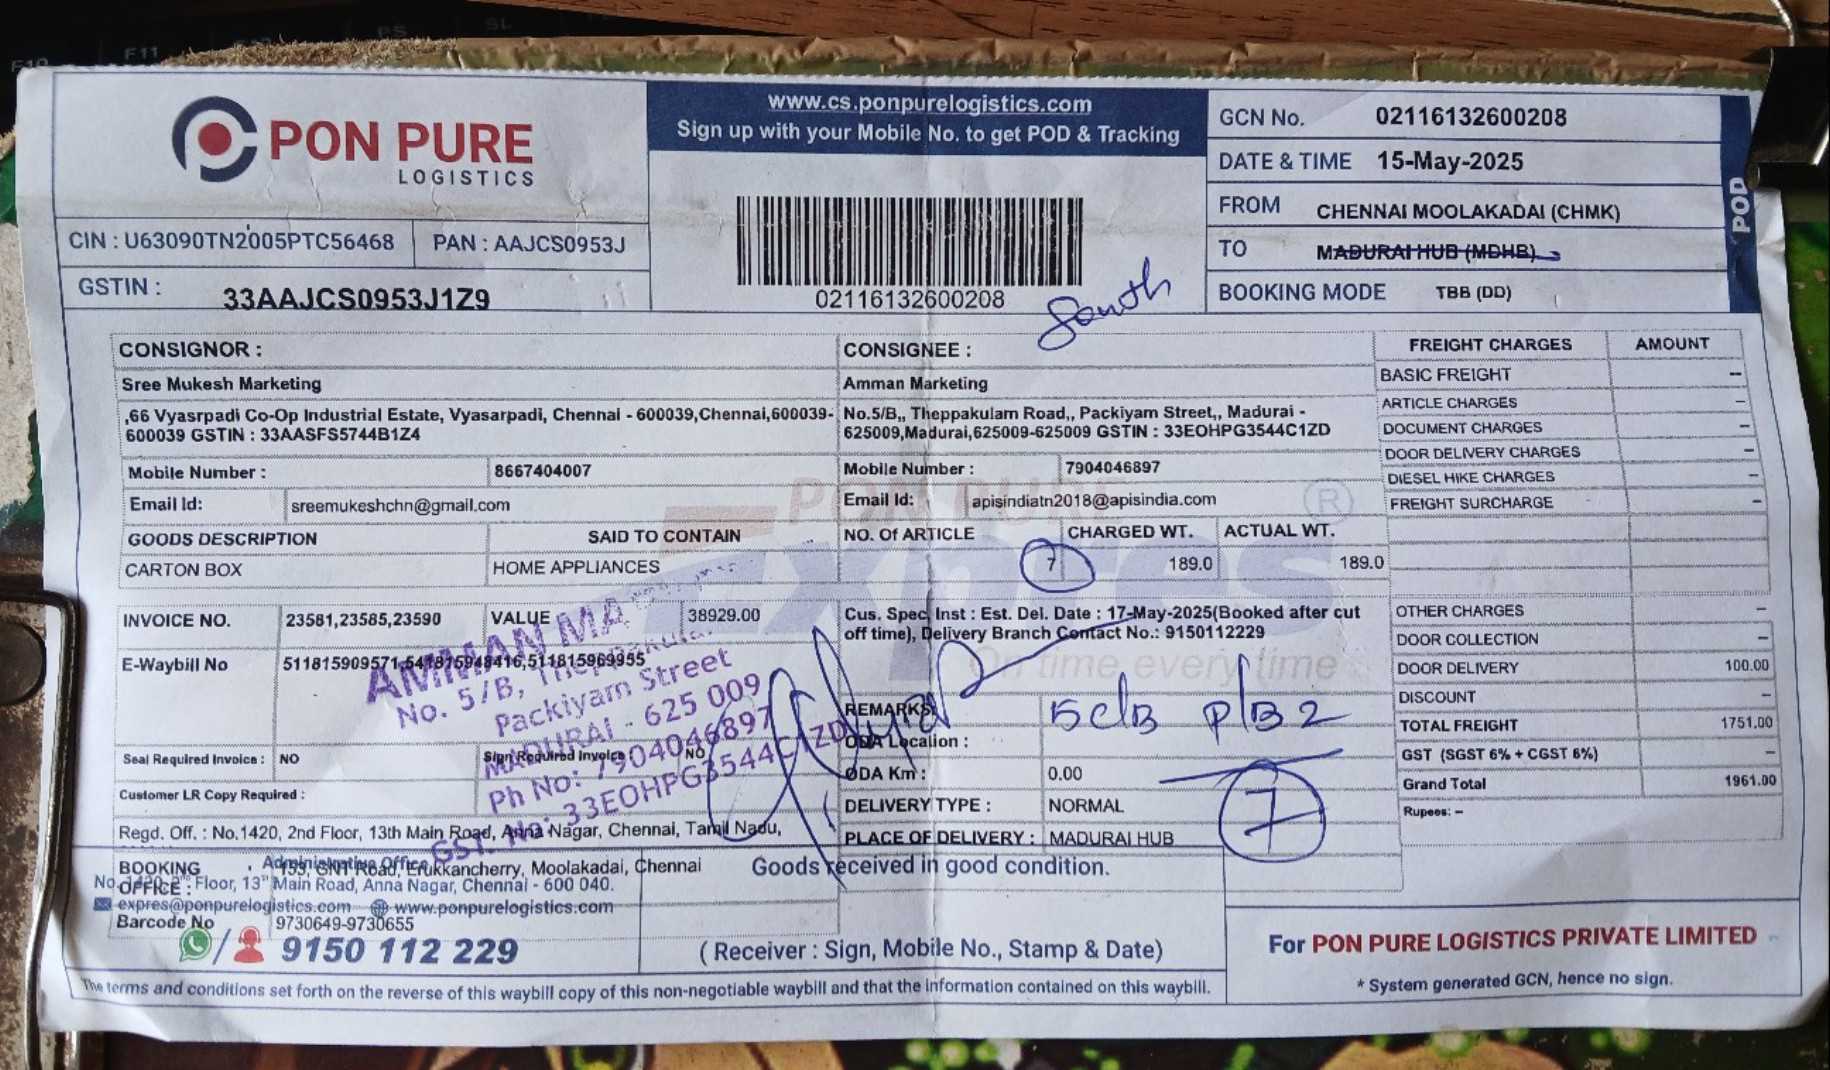 PON PURE
LOGISTICS
CIN : U63090TN2005PTC56468 PAN : AAJCS0953J
GSTIN : 33AAJCS0953J1Z9
www.cs.ponpurelogistics.com
Sign up with your Mobile No. to get POD & Tracking
02116132600208
South
GCN No. 02116132600208
DATE & TIME 15-May-2025
FROM CHENNAI MOOLAKADAI (CHMK)
TO MADURAI HUB (MDHB)
BOOKING MODE TBB (DD)
POD
CONSIGNOR :
Sree Mukesh Marketing
,66 Vyasrpadi Co-Op Industrial Estate, Vyasarpadi, Chennai - 600039,Chennai,600039-
600039 GSTIN : 33AASFS5744B1Z4
Mobile Number : 8667404007
Email Id: sreemukeshchn@gmail.com
CONSIGNEE :
Amman Marketing
No.5/B,, Theppakulam Road,, Packiyam Street,, Madurai -
625009,Madurai,625009-625009 GSTIN : 33EOHPG3544C1ZD
Mobile Number : 7904046897
Email Id: apisindiatn2018@apisindia.com
PON PURE
Expres
®
On time every time
GOODS DESCRIPTION SAID TO CONTAIN NO. Of ARTICLE CHARGED WT. ACTUAL WT.
CARTON BOX HOME APPLIANCES 7 189.0 189.0
INVOICE NO. 23581,23585,23590 VALUE 38929.00
E-Waybill No 511815909571,541875948416,511815969955
Seal Required Invoice : NO Sign Required Invoice NO
Customer LR Copy Required :
Regd. Off. : No.1420, 2nd Floor, 13th Main Road, Anna Nagar, Chennai, Tamil Nadu,
AMMAN MA
No. 5/B,
Packiyam Street
MADURAI - 625 009
Ph No: 7904046897
GST. No: 33EOHPG3544C1ZD
Cus. Spec. Inst : Est. Del. Date : 17-May-2025(Booked after cut
off time), Delivery Branch Contact No.: 9150112229
REMARKS
5CB P/B2
ODA Location :
ODA Km : 0.00
DELIVERY TYPE : NORMAL
PLACE OF DELIVERY : MADURAI HUB
7
FREIGHT CHARGES AMOUNT
BASIC FREIGHT --
ARTICLE CHARGES --
DOCUMENT CHARGES --
DOOR DELIVERY CHARGES --
DIESEL HIKE CHARGES --
FREIGHT SURCHARGE --
OTHER CHARGES --
DOOR COLLECTION --
DOOR DELIVERY 100.00
DISCOUNT --
TOTAL FREIGHT 1751.00
GST (SGST 6% + CGST 6%) --
Grand Total 1961.00
Rupees: --
BOOKING OFFICE : 153, GNT Road, Erukkancherry, Moolakadai, Chennai
Administrative Office
Floor, 13th Main Road, Anna Nagar, Chennai - 600 040.
expres@ponpurelogistics.com www.ponpurelogistics.com
Barcode No 9730649-9730655
9150 112 229
Goods received in good condition.
( Receiver : Sign, Mobile No., Stamp & Date)
For PON PURE LOGISTICS PRIVATE LIMITED
* System generated GCN, hence no sign.
The terms and conditions set forth on the reverse of this waybill copy of this non-negotiable waybill and that the information contained on this waybill.